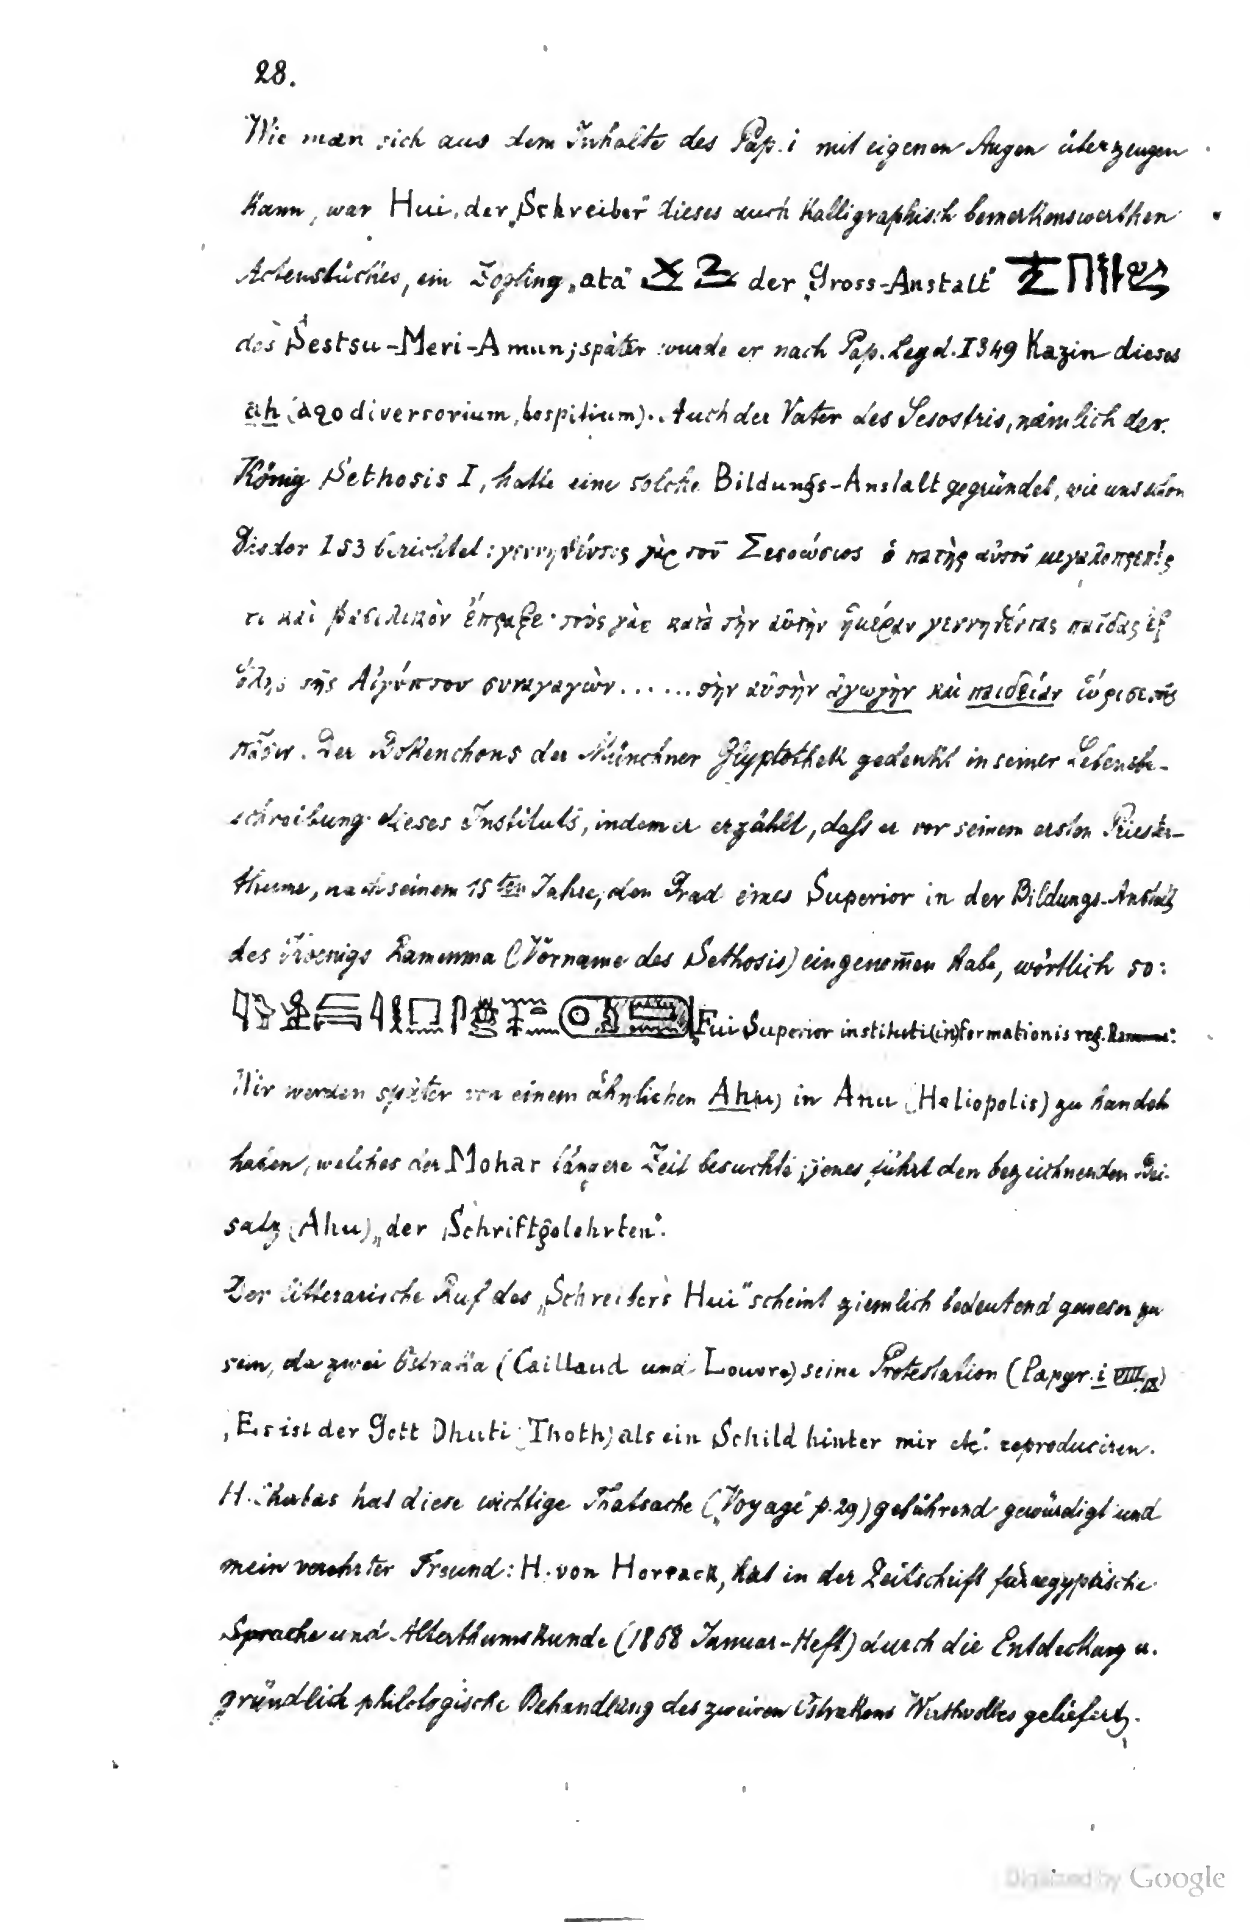 28.
Wie man sich aus dem Inhalte des Pap. i mit eigenen Augen überzeugen
kann, war Hui, der „Schreiber" dieses auch kalligraphisch bemerkenswerthen
Actenstückes, ein Zögling „ata" der „Gross-Anstalt"
des Sestsu-Meri-Amun; später wurde er nach Pap. Leyd. I 349 Kazin dieses
ah (aqo diversorium, hospitium). Auch der Vater des Sesostris, nämlich der
König Sethosis I, hatte eine solche Bildungs-Anstalt gegründet, wie uns schon
Diodor I 53 berichtet: γεννηθέντος γὰρ τοῦ Σεσοώσιος ὁ πατὴρ αὐτοῦ μεγαλοπρεπές
τι καὶ βασιλικὸν ἔπραξε· τοὺς γὰρ κατὰ τὴν αὐτὴν ἡμέραν γεννηθέντας παῖδας ἐξ
ὅλης τῆς Αἰγύπτου συναγαγὼν ...... τὴν αὐτὴν ἀγωγὴν καὶ παιδείαν ὥρισε τοῖς
πᾶσιν. Der Bokenchons der Münchner Glyptothek gedenkt in seiner Lebensbe-
schreibung dieses Instituts, indem er erzählt, dass er vor seinem ersten Priester-
thume, nach seinem 15ten Jahre, den Grad eines Superior in der Bildungs-Anstalt
des Koenigs Ramenma (Vorname des Sethosis) eingenom̄en habe, wörtlich so:
„Fui Superior instituti (in)formationis reg.
Wir werden später von einem ähnlichen Ahu in Anu (Heliopolis) zu handeln
haben, welches der Mohar längere Zeit besuchte; jenes führt den bezeichnenden Bei-
satz (Ahu) „der Schriftgelehrten".
Der litterarische Ruf des „Schreibers Hui" scheint ziemlich bedeutend gewesen zu
sein, da zwei Ostraka (Caillaud und Louvre) seine Protestation (Papyr. i VIII, IX)
„Es ist der Gott Dhuti (Thoth) als ein Schild hinter mir etc." reproduciren.
H. Chabas hat diese wichtige Thatsache („Voyage" p. 29) gebührend gewürdigt und
mein verehrter Freund: H. von Horrack, hat in der Zeitschrift für aegyptische
Sprache und Alterthumskunde (1868 Januar-Heft) durch die Entdeckung u.
gründlich philologische Behandlung des zweiten Ostrakons Werthvolles geliefert.
Digitized by Google